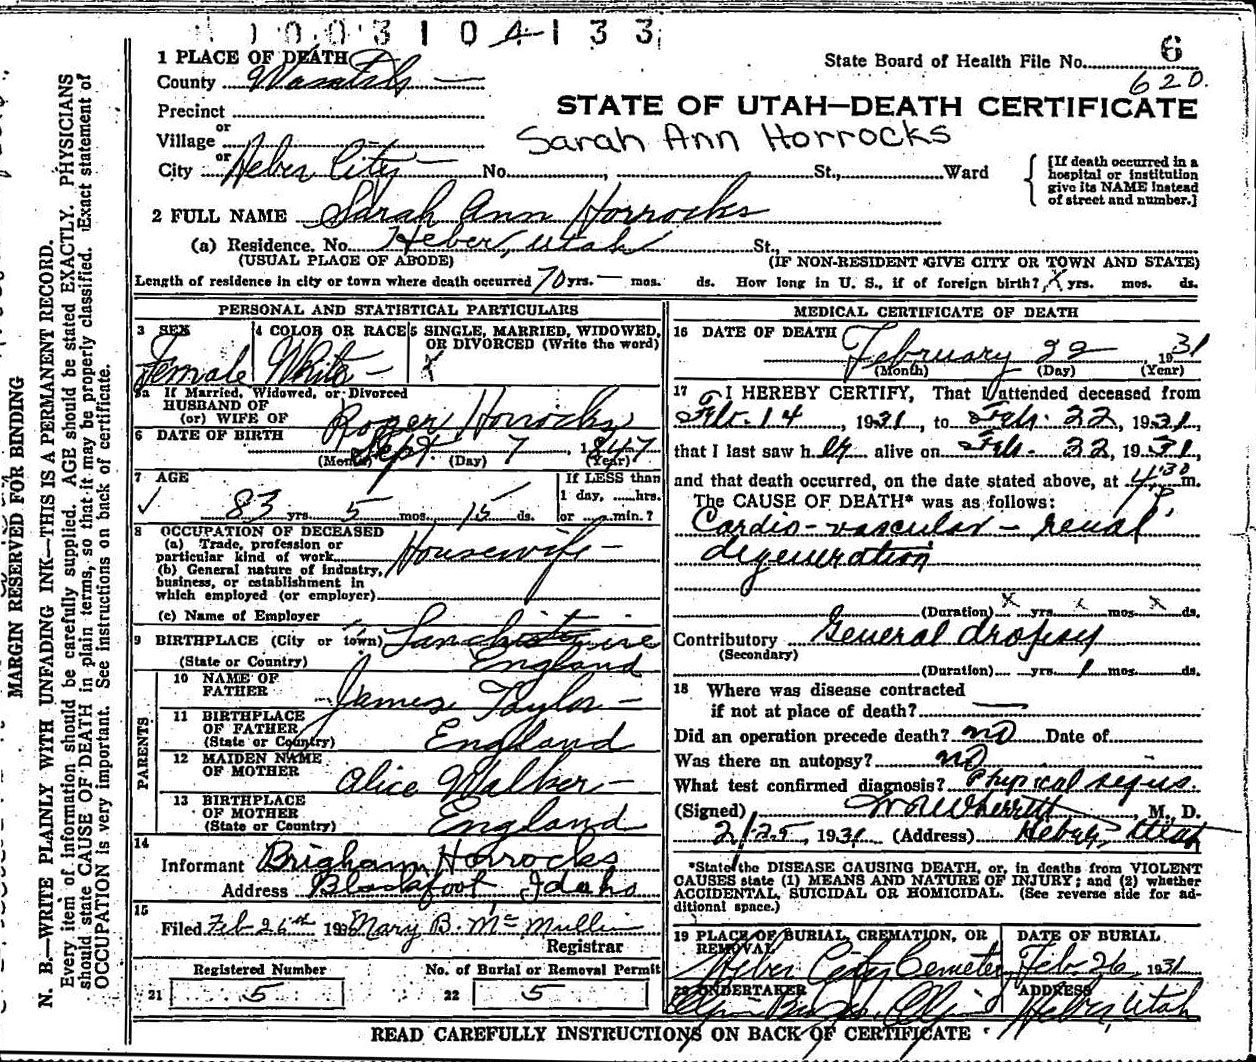 1003104133
1 PLACE OF DEATH
County Wasatch
State Board of Health File No. 6
620.
Precinct
STATE OF UTAH—DEATH CERTIFICATE
or
Village
Sarah Ann Horrocks
or
City Heber City No. St., Ward
[If death occurred in a
hospital or institution
give its NAME instead
of street and number.]
2 FULL NAME Sarah Ann Horrocks
(a) Residence. No. Heber, Utah St.,
(USUAL PLACE OF ABODE) (IF NON-RESIDENT GIVE CITY OR TOWN AND STATE)
Length of residence in city or town where death occurred 70 yrs. — mos. ds. How long in U. S., if of foreign birth? X yrs. mos. ds.
PERSONAL AND STATISTICAL PARTICULARS
3 SEX
Female
4 COLOR OR RACE
White
5 SINGLE, MARRIED, WIDOWED,
OR DIVORCED (Write the word)
X
5a If Married, Widowed, or Divorced
HUSBAND OF
(or) WIFE OF Roger Horrocks
6 DATE OF BIRTH
Sept 7, 1847
(Month) (Day) (Year)
7 AGE
If LESS than
1 day, ......hrs.
or ......min.?
83 yrs. 5 mos. 15 ds.
8 OCCUPATION OF DECEASED
(a) Trade, profession or
particular kind of work Housewife
(b) General nature of industry,
business, or establishment in
which employed (or employer)
(c) Name of Employer
9 BIRTHPLACE (City or town)
(State or Country) England
PARENTS
10 NAME OF
FATHER James Taylor
11 BIRTHPLACE
OF FATHER
(State or Country) England
12 MAIDEN NAME
OF MOTHER Alice Walker
13 BIRTHPLACE
OF MOTHER
(State or Country) England
14
Informant Brigham Horrocks
Address Blackfoot, Idaho
15
Filed Feb 26th 193 Mary B. Mc Mullin
Registrar
Registered Number
21 5
No. of Burial or Removal Permit
22 5
MEDICAL CERTIFICATE OF DEATH
16 DATE OF DEATH
February 22, 1931
(Month) (Day) (Year)
17 I HEREBY CERTIFY, That I attended deceased from
Feb. 14, 1931, to Feb. 22, 1931,
that I last saw her alive on Feb. 22, 1931,
and that death occurred, on the date stated above, at 4:30 P.m.
The CAUSE OF DEATH* was as follows:
Cardio-vascular-renal
degeneration
(Duration) X yrs. X mos. X ds.
Contributory General dropsy
(Secondary)
(Duration) yrs. 1 mos. ds.
18 Where was disease contracted
if not at place of death? —
Did an operation precede death? no Date of
Was there an autopsy? no
What test confirmed diagnosis? Physical signs.
(Signed) Wherritt, M. D.
2/25, 1931 (Address) Heber, Utah
*State the DISEASE CAUSING DEATH, or, in deaths from VIOLENT
CAUSES state (1) MEANS AND NATURE OF INJURY; and (2) whether
ACCIDENTAL, SUICIDAL OR HOMICIDAL. (See reverse side for ad-
ditional space.)
19 PLACE OF BURIAL, CREMATION, OR
REMOVAL
Heber City Cemetery
DATE OF BURIAL
Feb 26, 1931
20 UNDERTAKER
ADDRESS
Heber, Utah
READ CAREFULLY INSTRUCTIONS ON BACK OF CERTIFICATE
MARGIN RESERVED FOR BINDING
N. B.—WRITE PLAINLY WITH UNFADING INK—THIS IS A PERMANENT RECORD.
Every item of information should be carefully supplied. AGE should be stated EXACTLY. PHYSICIANS
should state CAUSE OF DEATH in plain terms, so that it may be properly classified. Exact statement of
OCCUPATION is very important. See instructions on back of certificate.